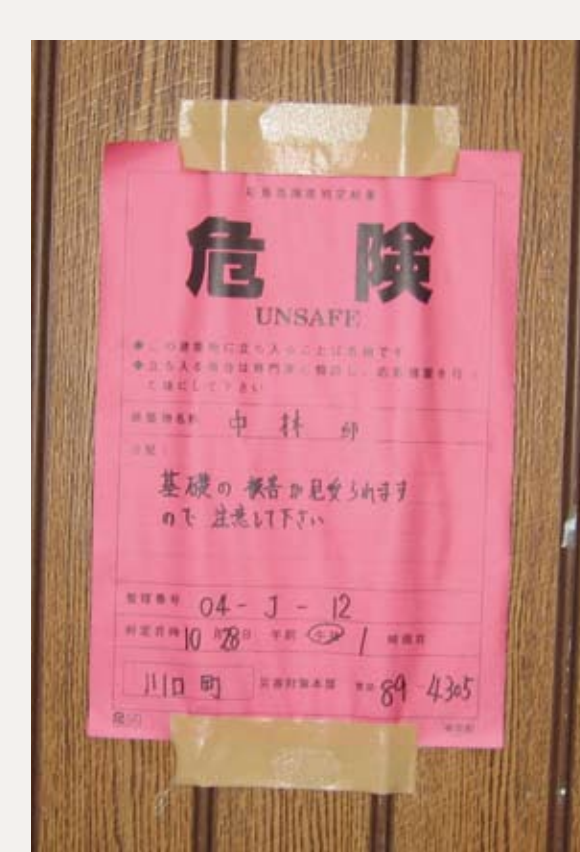 応急危険度判定結果
危険
UNSAFE
◆この建築物に立ち入ることは危険です
◆立ち入る場合は専門家に相談し、応急措置を行っ
た後にして下さい
建築物名称 中林 邸
注記:
基礎の被害が見受られます
ので 注意して下さい
整理番号 04-J-12
判定日時 10月28日 午前 午後 1 時現在
川口町 災害対策本部 電話 89 4305